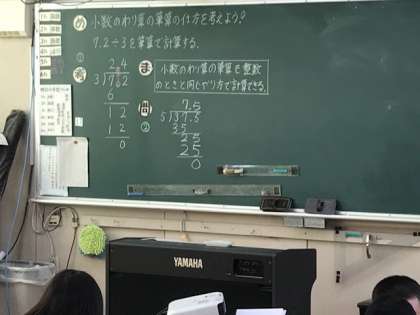 め 小数のわり算の筆算の仕方を考えよう。
7.2÷3を筆算で計算する。
①
2.4
3)7.2
6
12
12
0
ま 小数のわり算の筆算も整数
のときと同じやり方で計算できる。
問
②
7.5
5)37.5
35
25
25
0
YAMAHA